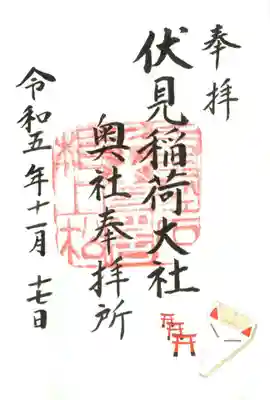 奉拝
伏見稲荷大社
奥社奉拝所
令和五年十一月十七日